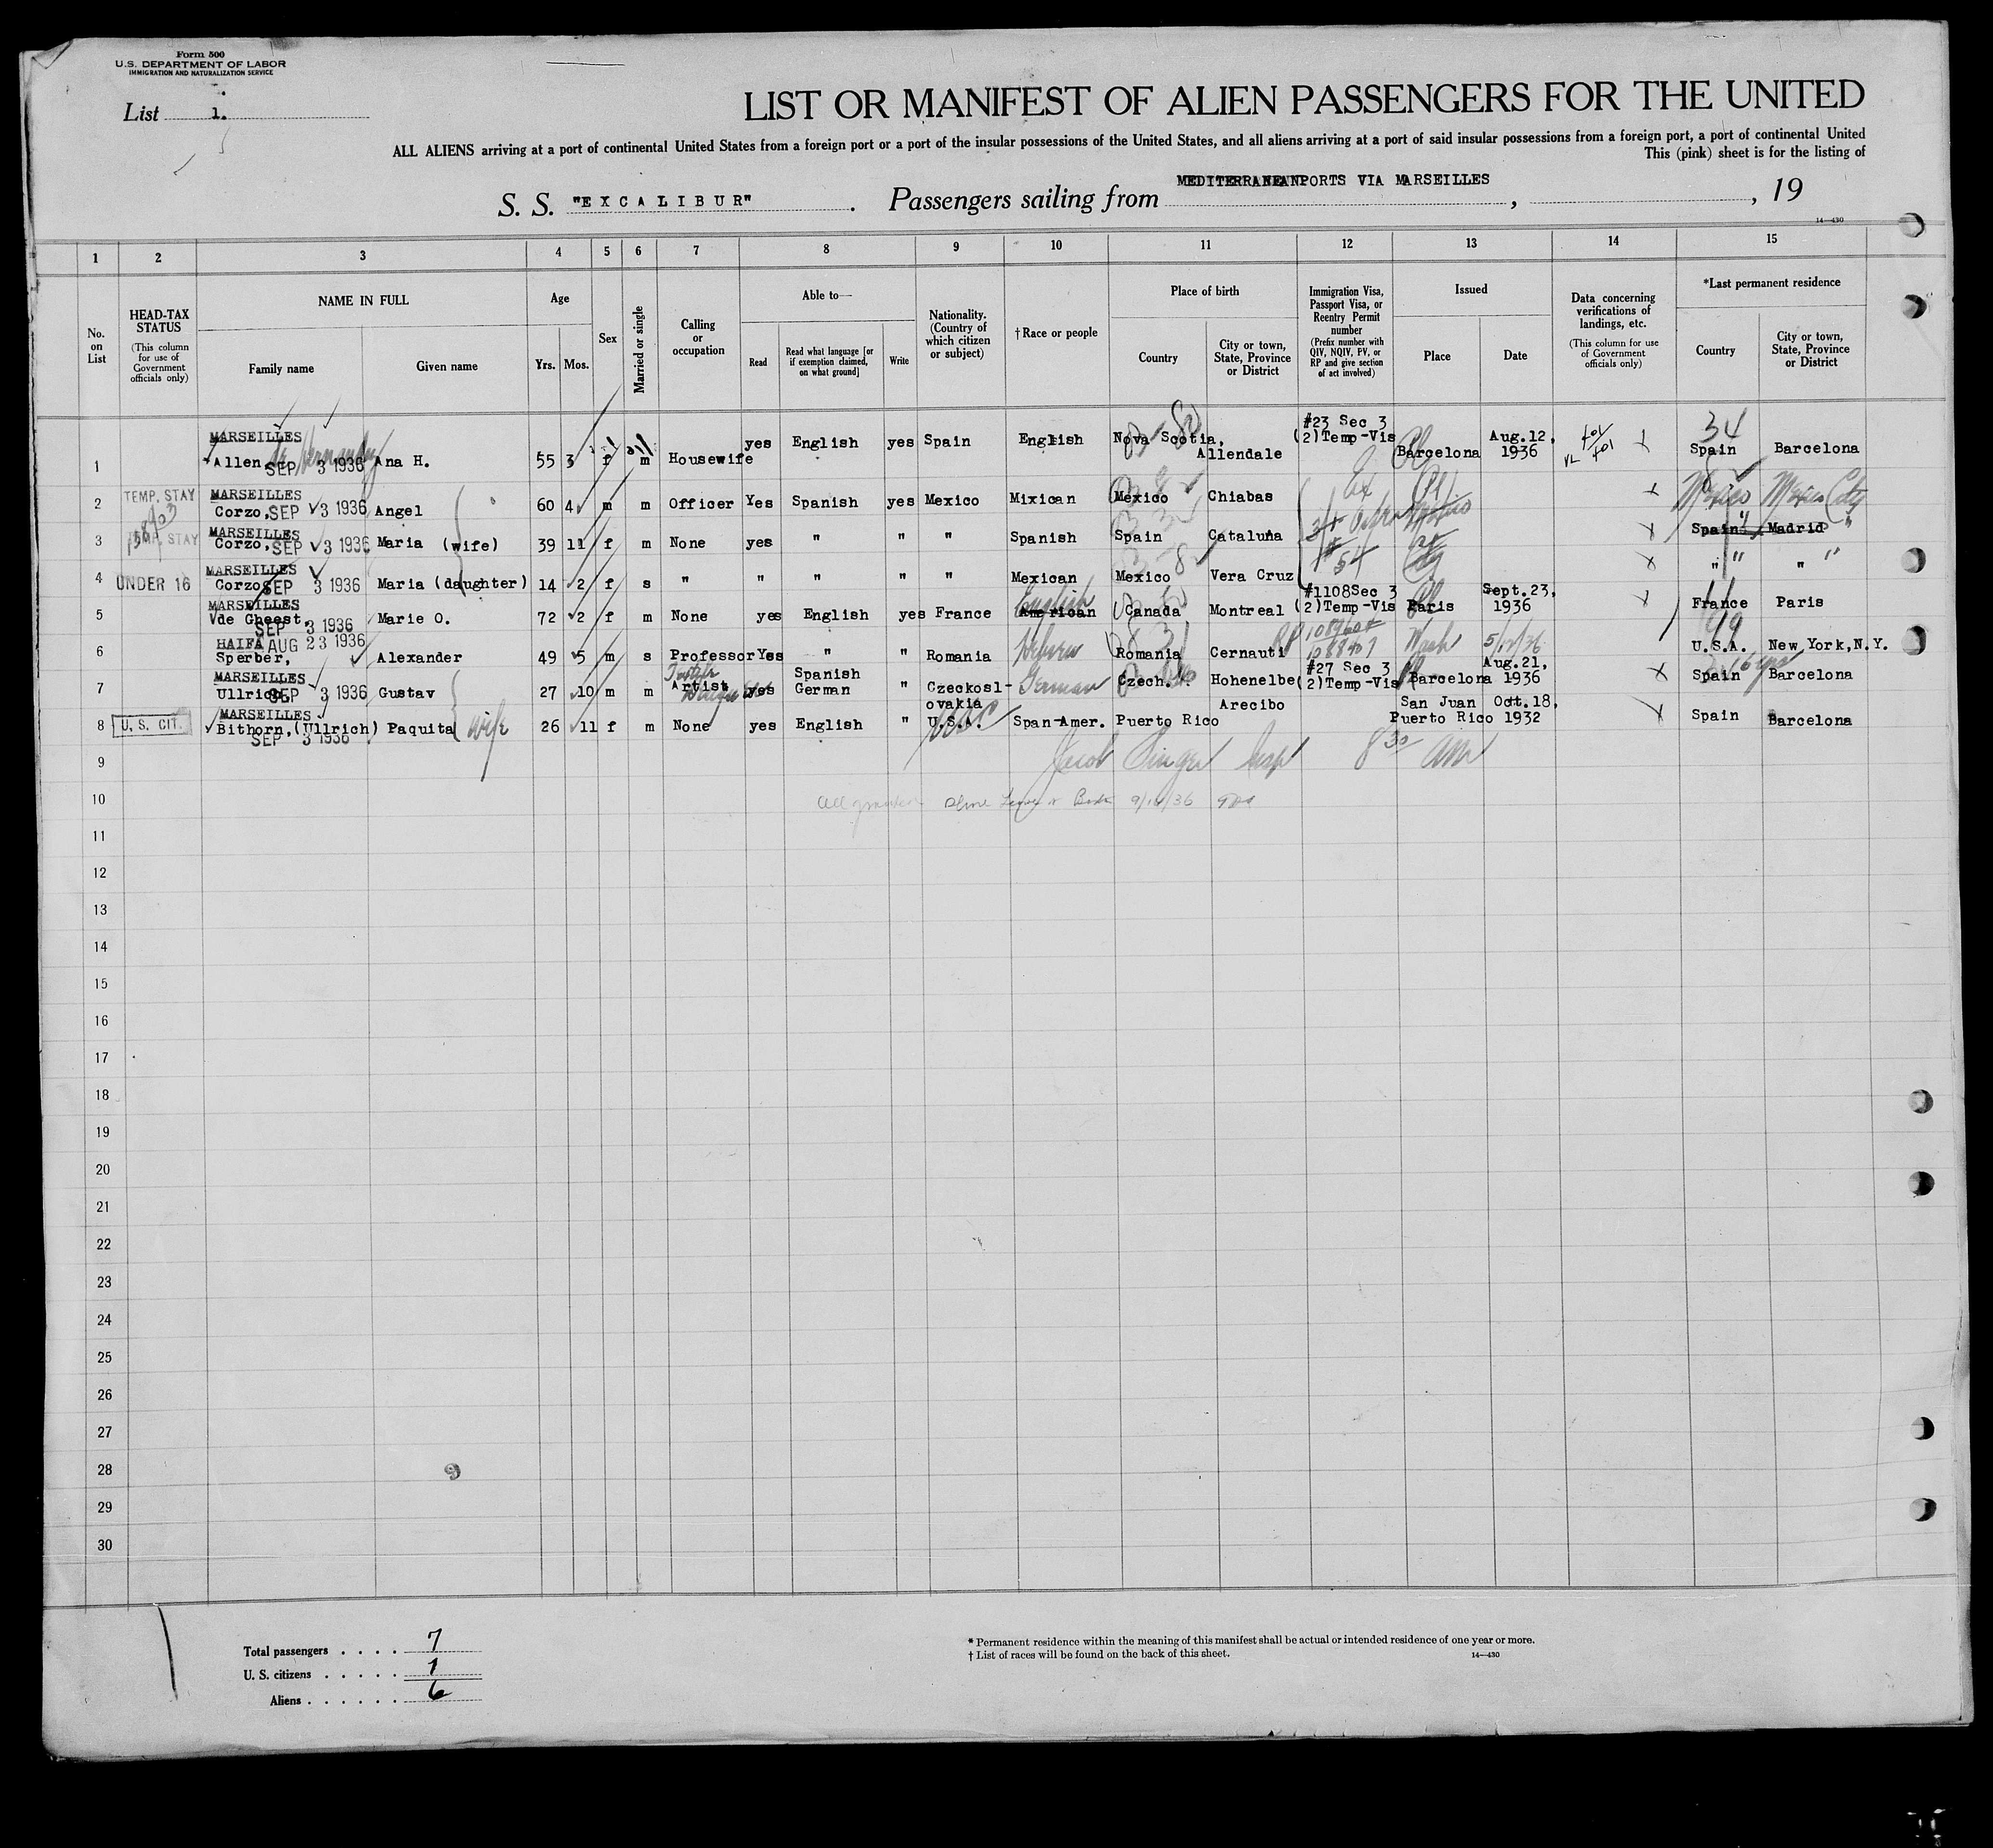 Form 500
U.S. DEPARTMENT OF LABOR
IMMIGRATION AND NATURALIZATION SERVICE
List 1.
LIST OR MANIFEST OF ALIEN PASSENGERS FOR THE UNITED
ALL ALIENS arriving at a port of continental United States from a foreign port or a port of the insular possessions of the United States, and all aliens arriving at a port of said insular possessions from a foreign port, a port of continental United
This (pink) sheet is for the listing of
S. S. "EXCALIBUR". Passengers sailing from MEDITERRANEAN PORTS VIA MARSEILLES, , 19
14—430
1 2 3 4 5 6 7 8 9 10 11 12 13 14 15
No. on List
HEAD-TAX STATUS (This column for use of Government officials only)
NAME IN FULL
Family name Given name
Age
Yrs. Mos.
Sex
Married or single
Calling or occupation
Able to—
Read Read what language [or if exemption claimed, on what ground] Write
Nationality. (Country of which citizen or subject)
† Race or people
Place of birth
Country City or town, State, Province or District
Immigration Visa, Passport Visa, or Reentry Permit number (Prefix number with QIV, NQIV, PV, or RP and give section of act involved)
Issued
Place Date
Data concerning verifications of landings, etc. (This column for use of Government officials only)
*Last permanent residence
Country City or town, State, Province or District
MARSEILLES SEP 3 1936
1 Allen Ana H. 55 3 f m Housewife yes English yes Spain English Nova Scotia, Allendale #23 Sec 3 (2)Temp-Vis Barcelona Aug.12, 1936 34 Spain Barcelona
MARSEILLES SEP 3 1936
2 TEMP. STAY Corzo, Angel 60 4 m m Officer Yes Spanish yes Mexico Mixican Mexico Chiabas Mexico Mexico City
MARSEILLES SEP 3 1936
3 TEMP. STAY Corzo, Maria (wife) 39 11 f m None yes " " " Spanish Spain Cataluña Spain Madrid "
MARSEILLES SEP 3 1936
4 UNDER 16 Corzo Maria (daughter) 14 2 f s " " " " " Mexican Mexico Vera Cruz " " "
MARSEILLES SEP 3 1936
5 de Gheest, Marie O. 72 2 f m None yes English yes France American English Canada Montreal #1108 Sec 3 (2)Temp-Vis Paris Sept.23, 1936 France Paris
HAIFA AUG 23 1936
6 Sperber, Alexander 49 5 m s Professor Yes " " Romania Hebrew Romania Cernauti RP Wash 5/12/36 U.S.A. New York,N.Y.
MARSEILLES SEP 3 1936
7 Ullrich, Gustav 27 10 m m Artist yes Spanish German " Czeckoslovakia German Czech. Hohenelbe #27 Sec 3 (2)Temp-Vis Barcelona Aug.21, 1936 Spain Barcelona
MARSEILLES SEP 3 1936
8 U. S. CIT. Bithorn,(Ullrich) Paquita wife 26 11 f m None yes English " U.S.A. Span-Amer. Puerto Rico Arecibo San Juan Puerto Rico Oct.18, 1932 Spain Barcelona
9 Jacob Singer Insp 8 30 AM
10 9/10/36
11
12
13
14
15
16
17
18
19
20
21
22
23
24
25
26
27
28
29
30
Total passengers . . . . 7
U. S. citizens . . . . . 1
Aliens . . . . . . 6
* Permanent residence within the meaning of this manifest shall be actual or intended residence of one year or more.
† List of races will be found on the back of this sheet.
14—430